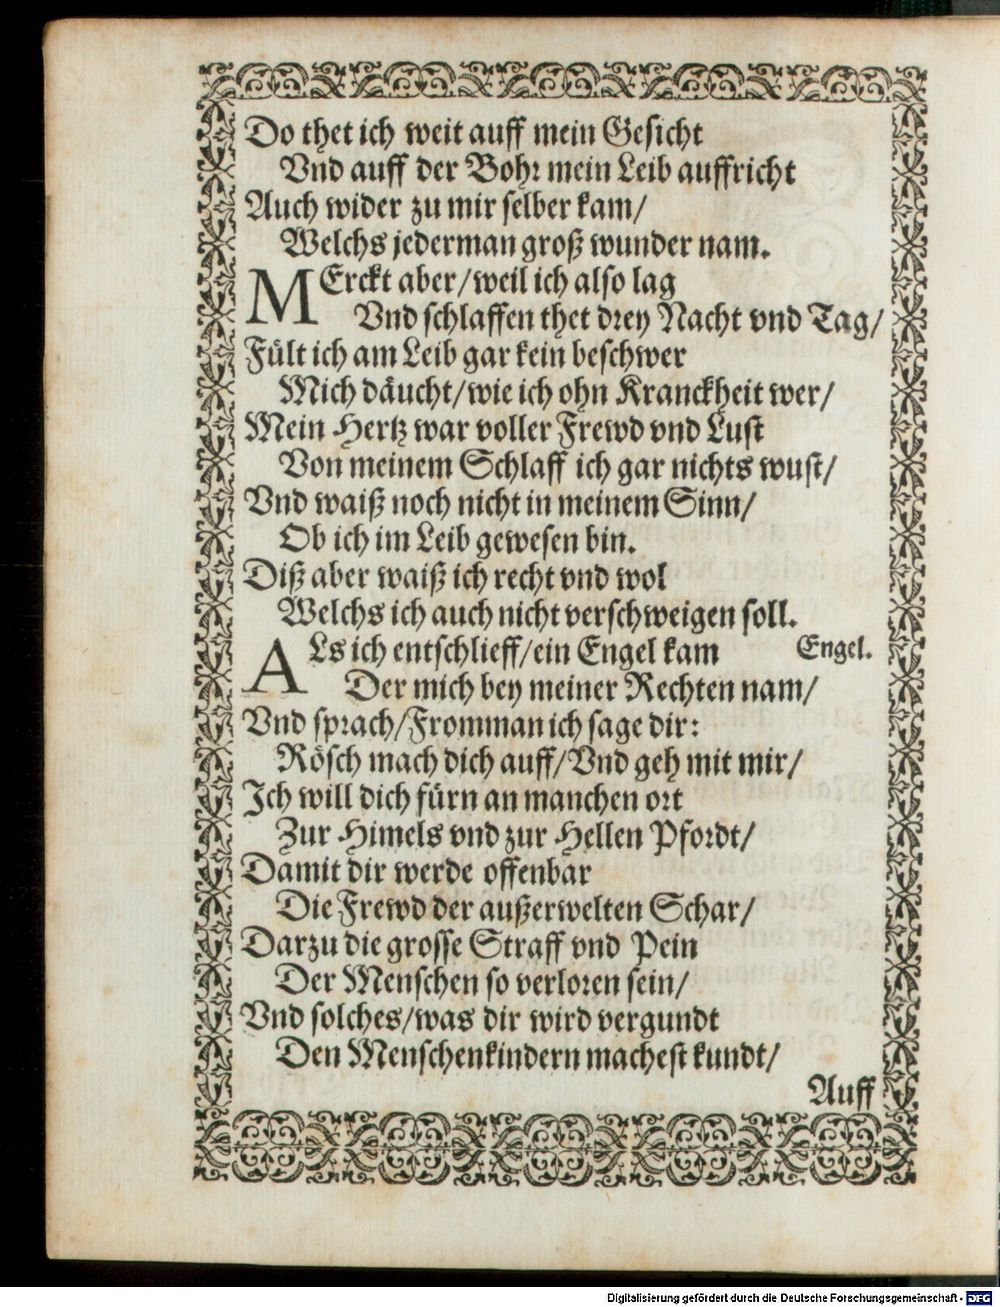 Do thet ich weit auff mein Gesicht
Vnd auff der Bohr mein Leib auffricht
Auch wider zu mir selber kam/
Welchs jederman groß wunder nam.
MErckt aber/weil ich also lag
Vnd schlaffen thet drey Nacht vnd Tag/
Fült ich am Leib gar kein beschwer
Mich däucht/wie ich ohn Kranckheit wer/
Mein Hertz war voller Frewd vnd Lust
Von meinem Schlaff ich gar nichts wust/
Vnd waiß noch nicht in meinem Sinn/
Ob ich im Leib gewesen bin.
Diß aber waiß ich recht vnd wol
Welchs ich auch nicht verschweigen soll.
ALs ich entschlieff/ein Engel kam Engel.
Der mich bey meiner Rechten nam/
Vnd sprach/Fromman ich sage dir:
Rösch mach dich auff/Vnd geh mit mir/
Ich will dich fürn an manchen ort
Zur Himels vnd zur Hellen Pfordt/
Damit dir werde offenbar
Die Frewd der außerwelten Schar/
Darzu die grosse Straff vnd Pein
Der Menschen so verloren sein/
Vnd solches/was dir wird vergundt
Den Menschenkindern machest kundt/
Auff
Digitalisierung gefördert durch die Deutsche Forschungsgemeinschaft - DFG